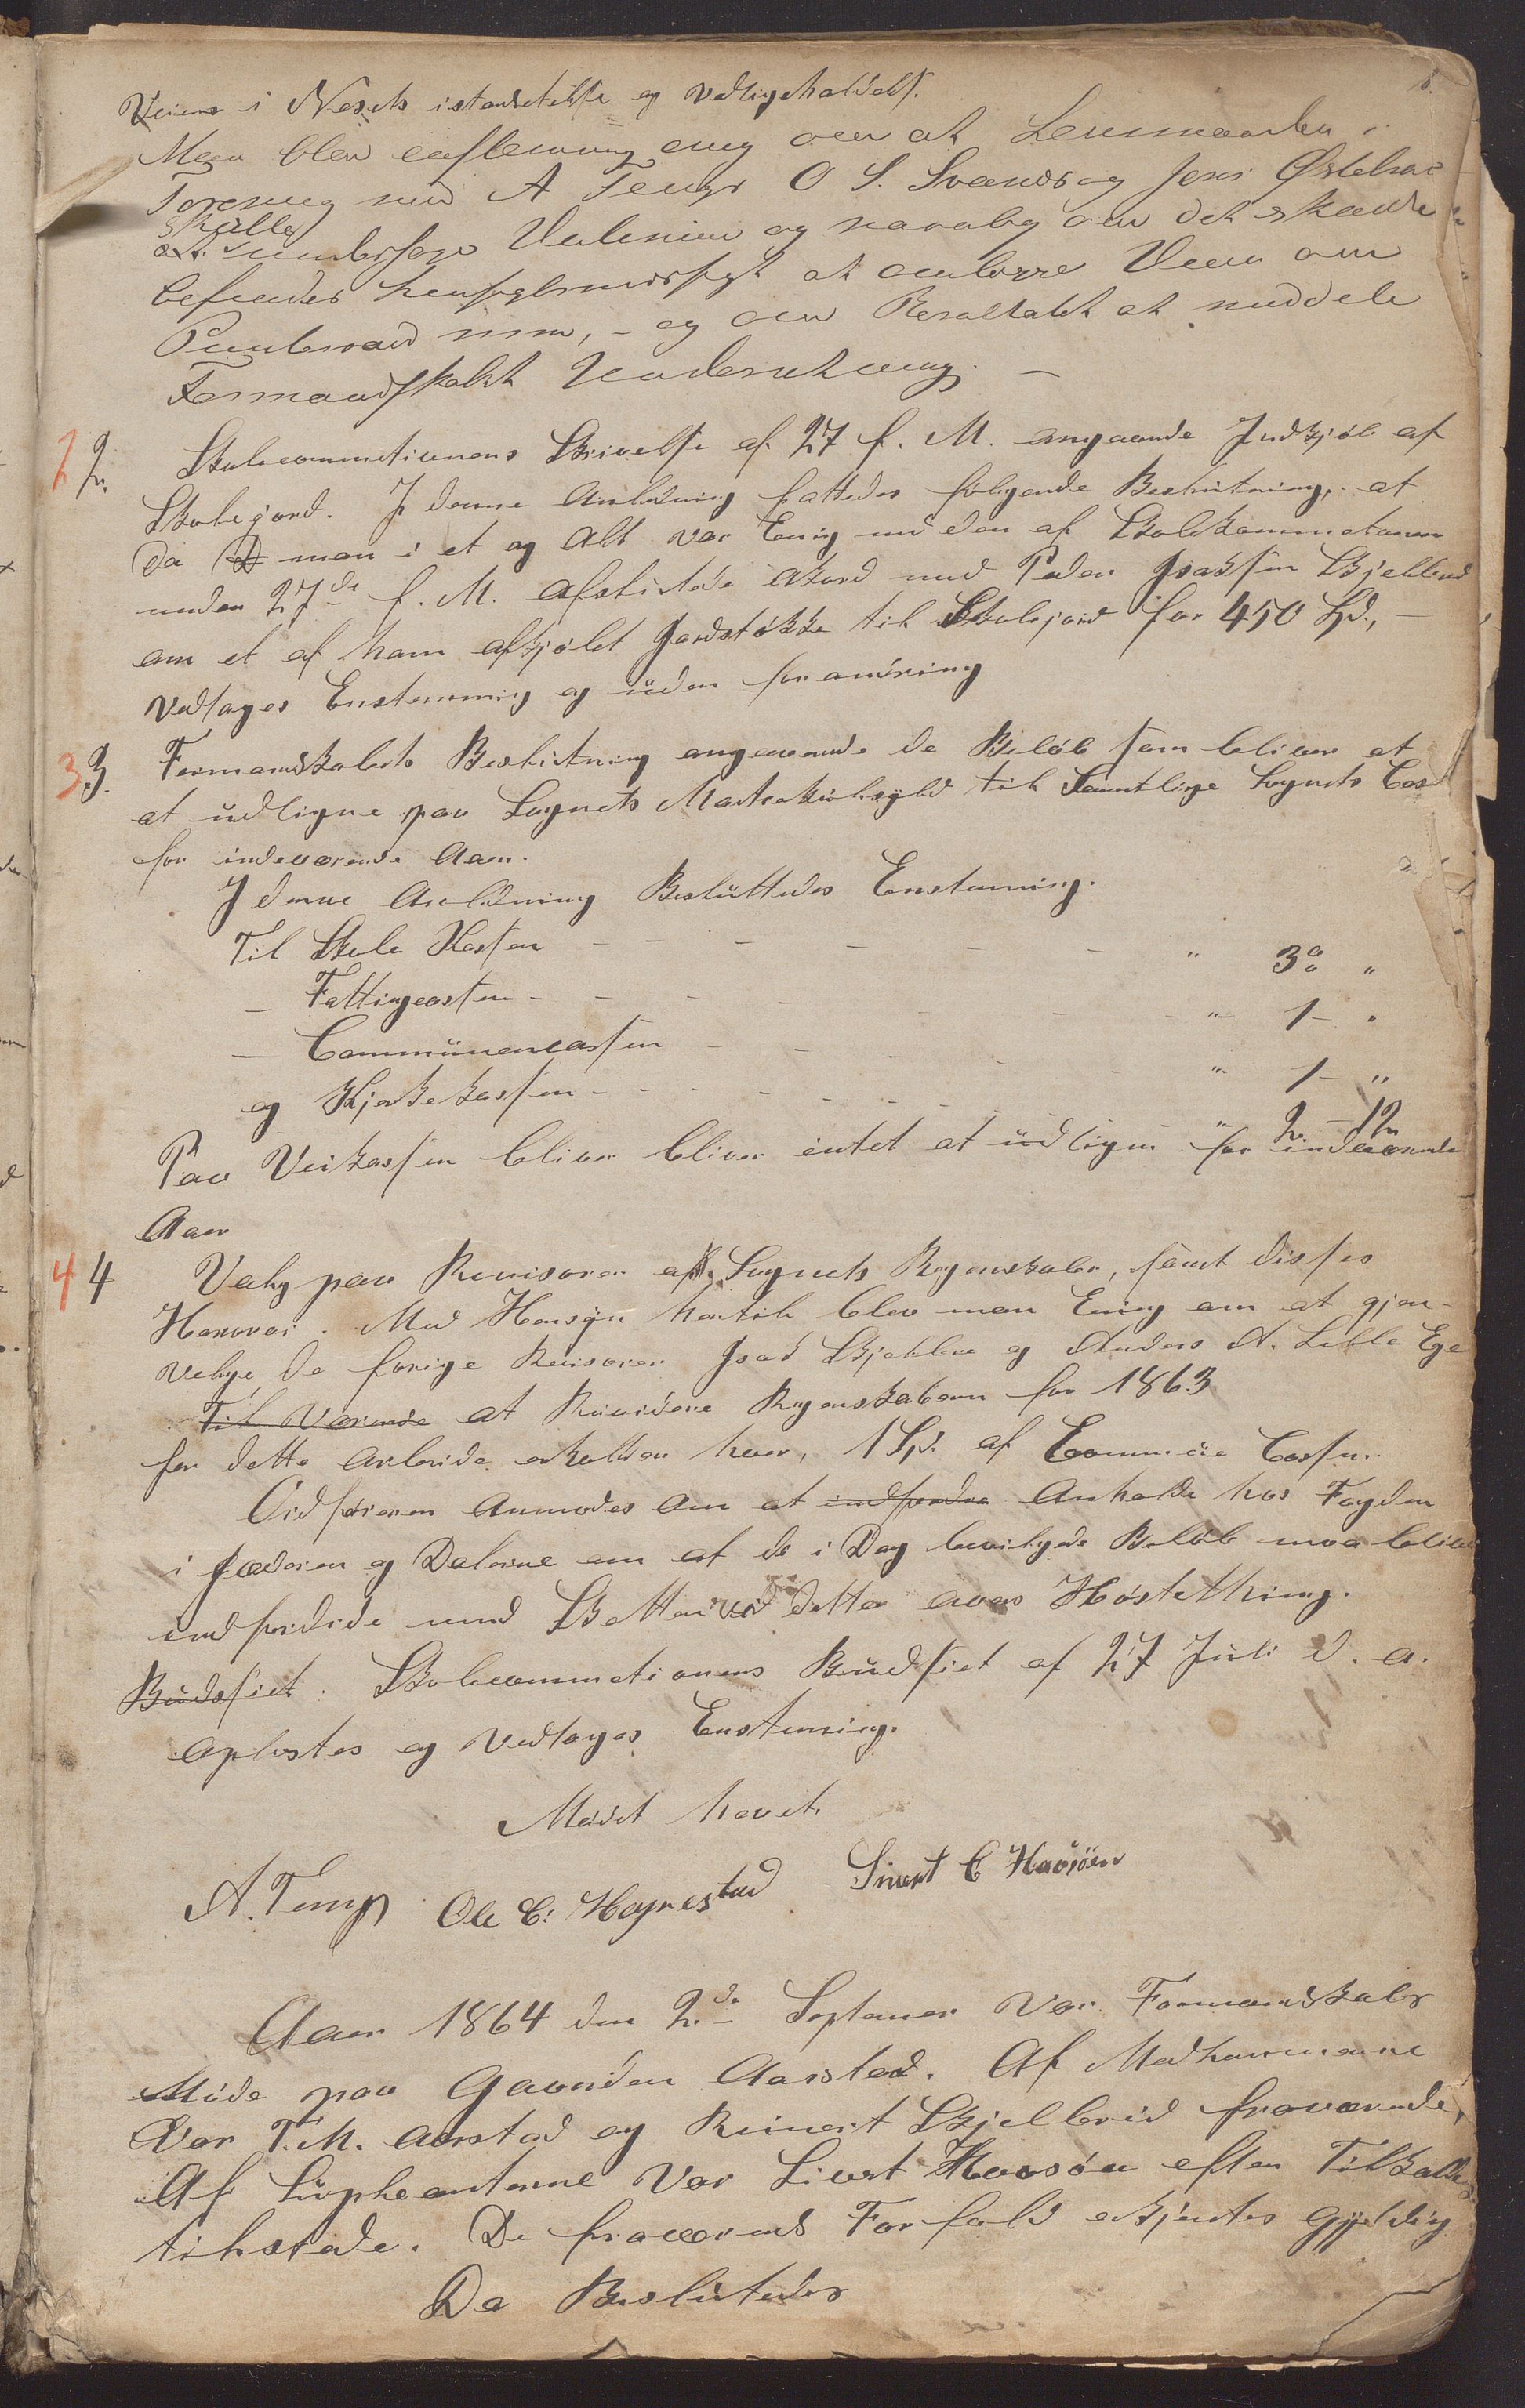 Veiens i Nesets istandsettelse og vedligeholdelse.
Man blev eenstemmig enig om at Lensmanden i
Forening med A Tengs O S. Svanes og Jens
skulle
at undersøge Veilinien og navnlig om det skulde
befindes hensigtsmæssigt at omlægge Veien om
mm, - og om Resultatet at meddele
Formandskabet Underretning. -
2 2. Skolecommetionens Skrivelse af 27 f. M. angaaende Indkjøb af
Skolejord. I denne Anledning fattedes følgende Beslutning, at
da man i et og Alt var Enig med den af Skolekommetionen
under 27de f. M. afsluttede Akord med Peder Isaksen Skjebbred
om et af ham afkjøbt Jordstøkke til Skolejord for 450 Spd., -
Vedtages Enstemmig og uden forandring
3 3. Formandskabets Beslutning angaaende de Beløb som bliver at
at udligne paa Sognets Matrikulskyld til Samtlige Sognets Cass
for indeværende Aar.
I denne Anledning Besluttedes Enstemmig.
Til Skole Kassen - - - - - " 3 "
- Fattigcassen - - - - " 1 - "
- Communecassen - - - - " 1 - "
og Kjerkekassen - - - - - " 2 - 12
Paa Veikassen bliver bliver intet at udligne for indeværende
Aar
4 4 Valg paa Revisorer af Sognets Regnskaber, samt disses
Honorar. Med Hensyn hertil blev man Enig om at gjen-
velge de forige Revisorer Isak Skjebbre og Anders A. Lille Ege
Til Værende at Revidere Regnskaberne for 1863
for dette Arbeide erholder hver, 1 Spd. af Commune Cassen.
Ordføreren Anmodes om at indfordre Anholde hos Fogden
i Jæderen og Dalerne om at de i Dag bevilgede Beløb maa blive
indfordrede med Skatten ved dette aars Høstething.
Budsiet. Skolecommetionens Budsiet af 27 Juli d. a.
oplæstes og Vedtages Enstemmig.
Mødet hævet.
A. Tengs Ole C: Hognestad Sivert C Havsøen
Aar 1864 den 2de Septemer var Formandskabs
Møde paa Gaarden Aarstad. Af Medlemmerne
Var T. M. Aarstad og Reinert Skjelbred fraværende,
Af Supleanterne Var Sivert Havsøen efter Tilkallelse
tilstede. De fraværends Forfald erkjentes Gyldig
Da Beslutedes